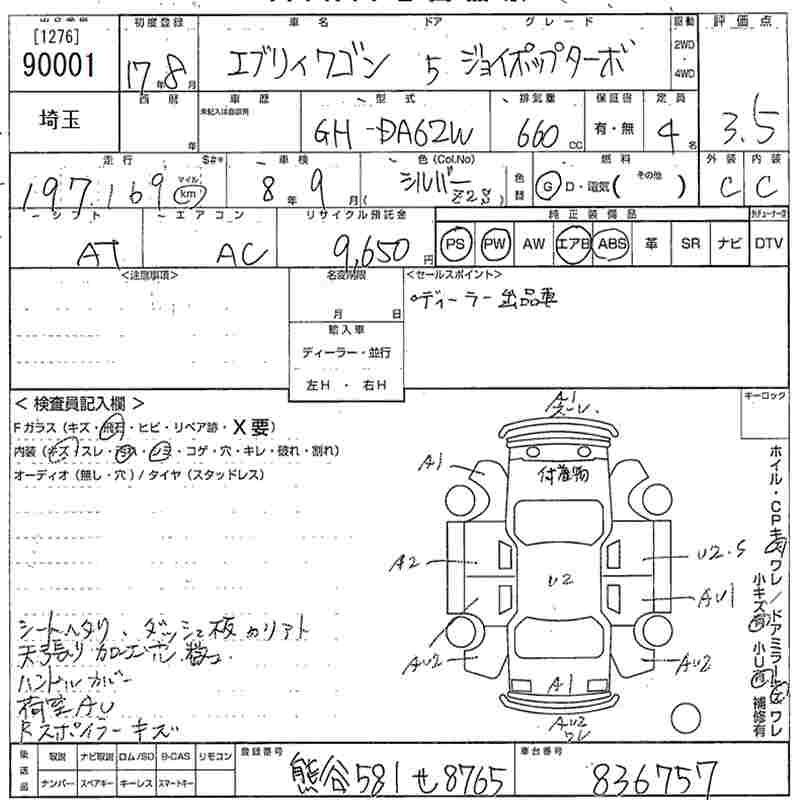 [1276]
90001
初度登録 車名 ドア グレード 駆動 評価点
17年8月 エブリィワゴン 5 ジョイポップターボ 2WD・4WD 3.5
埼玉
西暦 車歴 型式 排気量 保証書 定員
年 未記入は自家用 GH-DA62W 660cc 有・無 4名
走行 S#* 車検 色(Col.No) 色替 燃料 外装 内装
197,169 マイル km 8年9月 シルバー( Z2S ) G D・電気( その他 ) C C
シフト エアコン リサイクル預託金 純正装備品
AT AC 9,650円 PS PW AW エアB ABS 革 SR ナビ DTV
<注意事項> 名変期限 <セールスポイント>
月 日 ディーラー出品車
輸入車
ディーラー・並行
左H・右H
<検査員記入欄> キーロック
Fガラス(キズ・飛石・ヒビ・リペア跡・X要)
内装(キズ・スレ・汚れ・シミ・コゲ・穴・キレ・破れ・割れ)
オーディオ(無し・穴)/タイヤ(スタッドレス)
シートヘタリ、ダッシュ板カリアト
天張り加工穴数コ
ハンドルカバー
荷室AU
Rスポイラーキズ
A1
ズレ
A1
付着物
A2
U2.5
U2
AU1
AU2
AU2
A1
AU2
ワレ
ホイル・CPキズ ワレ/ドアミラーキズ ワレ
小キズ有 小U有 補修有
後送品 取説 ナビ取説 ロム/SD B-CAS リモコン 登録番号 車台番号
ナンバー スペアキー キーレス スマートキー 熊谷581せ8765 836757